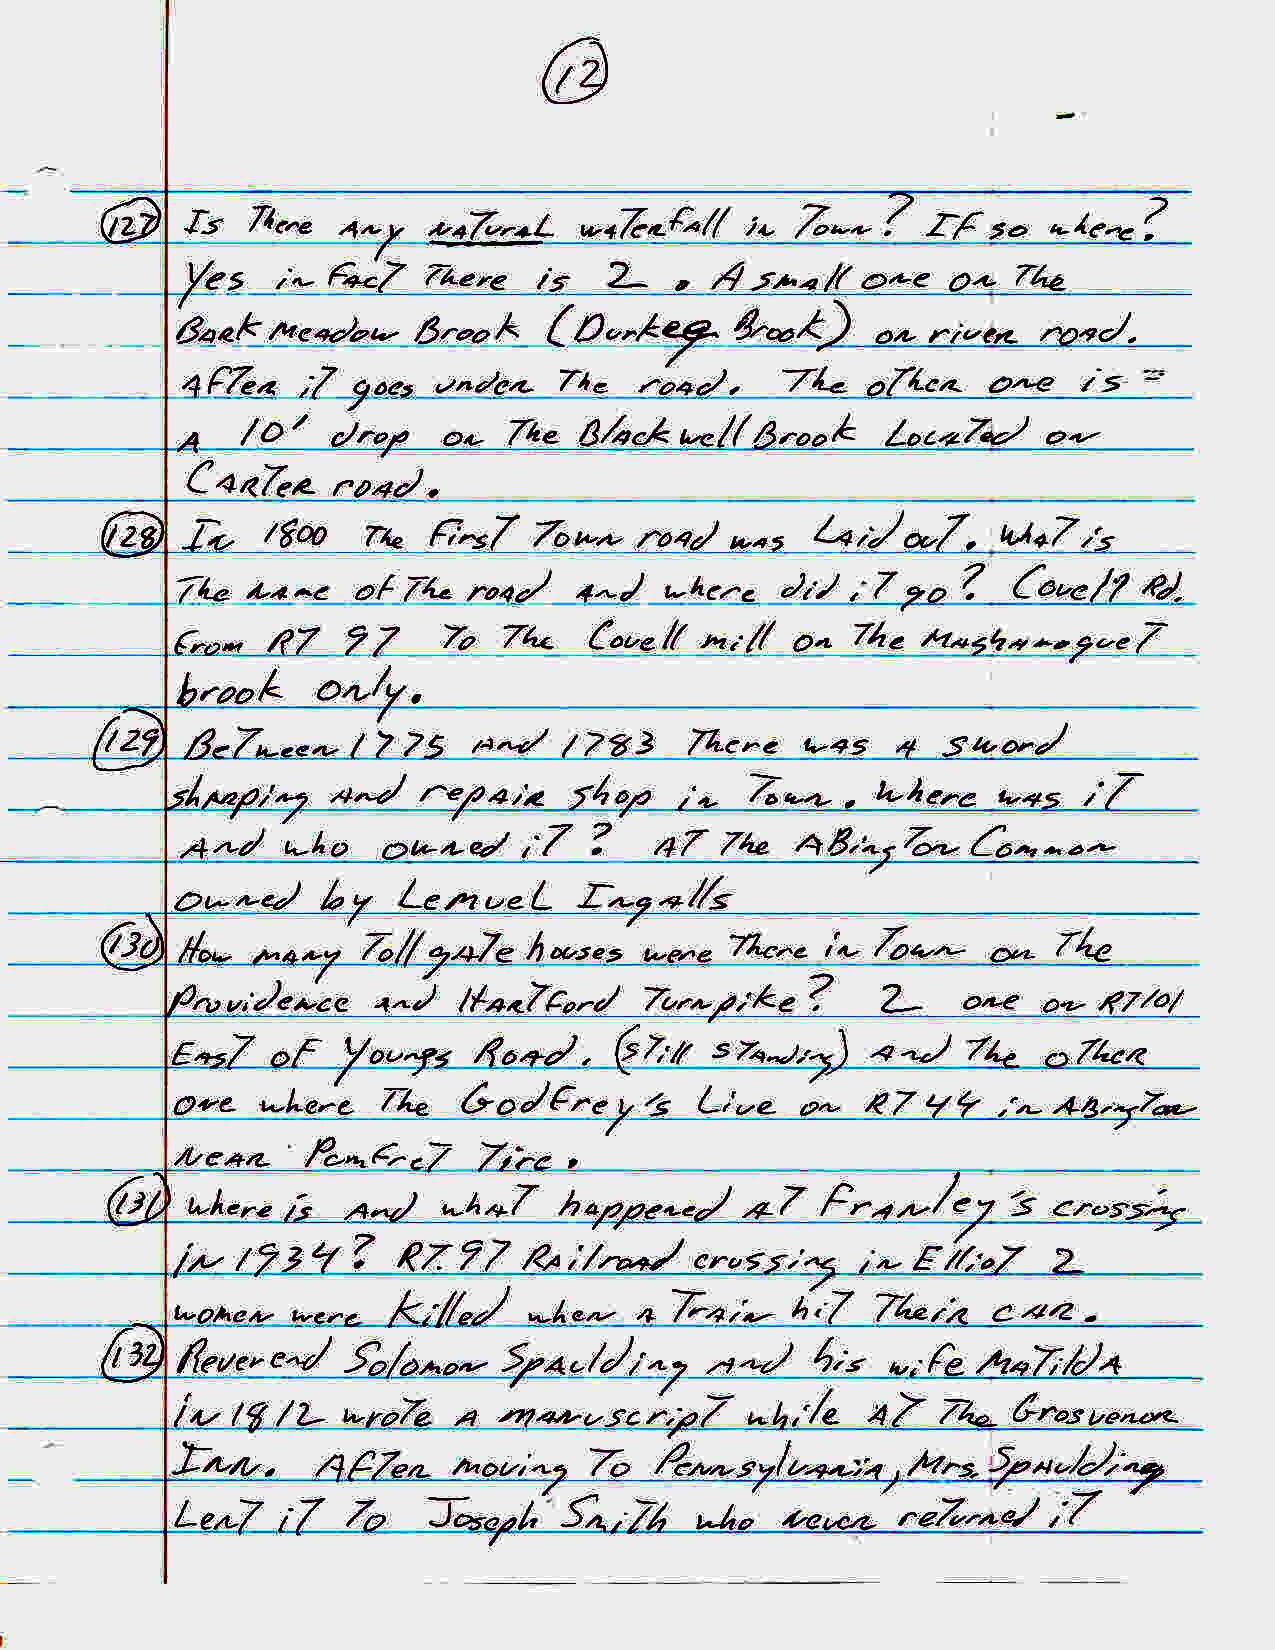 12
127 Is There Any Natural waterfall in Town? If so where?
Yes in fact There is 2. A small one on The
Bark Meadow Brook (Durkee Brook) on river road.
After it goes under The road. The other one is =
A 10' drop on The Blackwell Brook Located on
Carter road.
128 In 1800 The First Town road was Laid out. What is
The name of The road and where did it go? Covell Rd.
From RT 97 To The Covell mill on The Mashamoquet
brook only.
129 Between 1775 and 1783 There was a sword
sharping and repair shop in Town. Where was it
And who owned it? At The Abington Common
owned by Lemuel Ingalls
130 How many Toll gate houses were There in Town on The
Providence and Hartford Turnpike? 2 one on RT 101
East of Youngs Road. (still standing) and The other
one where The Godfrey's Live on RT 44 in Abington
Near Pomfret Tire.
131 Where is and what happened at Franley's crossing
in 1934? RT. 97 Railroad crossing in Elliot 2
women were killed when a Train hit Their car.
132 Reverend Solomon Spaulding and his wife Matilda
in 1812 wrote a manuscript while at The Grosvenor
Inn. After moving To Pennsylvania, Mrs. Spaulding
Lent it To Joseph Smith who never returned it